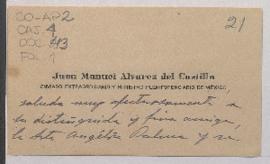 CO-AP2
CAJ. 4
DOC. 43
FOL. 1
21
Juan Manuel Alvarez del Castillo
ENVIADO EXTRAORDINARIO Y MINISTRO PLENIPOTENCIARIO DE MÉXICO,
saluda muy afectuosamente a
la distinguida y fina amiga,
la Srta Angélica Palma y se